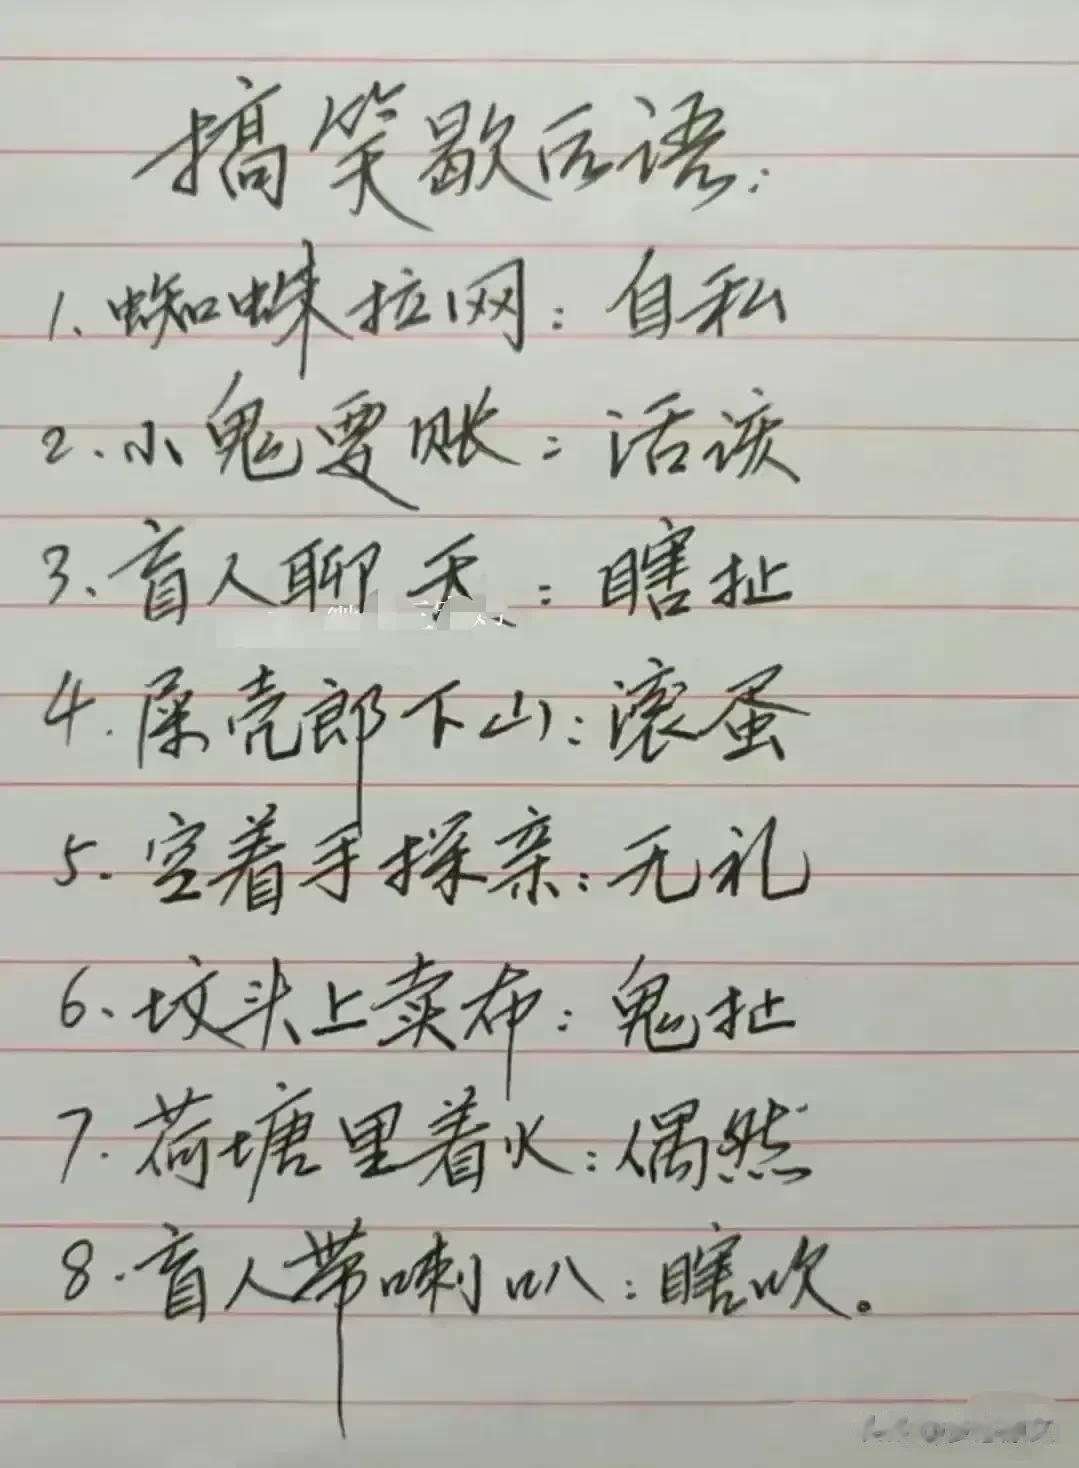 搞笑歇后语：
1、蜘蛛拉网：自私
2、小鬼要账：活该
3、盲人聊天：瞎扯
4、屎壳郎下山：滚蛋
5、空着手探亲：无礼
6、坟头上卖布：鬼扯
7、荷塘里着火：偶然
8、盲人带喇叭：瞎吹。